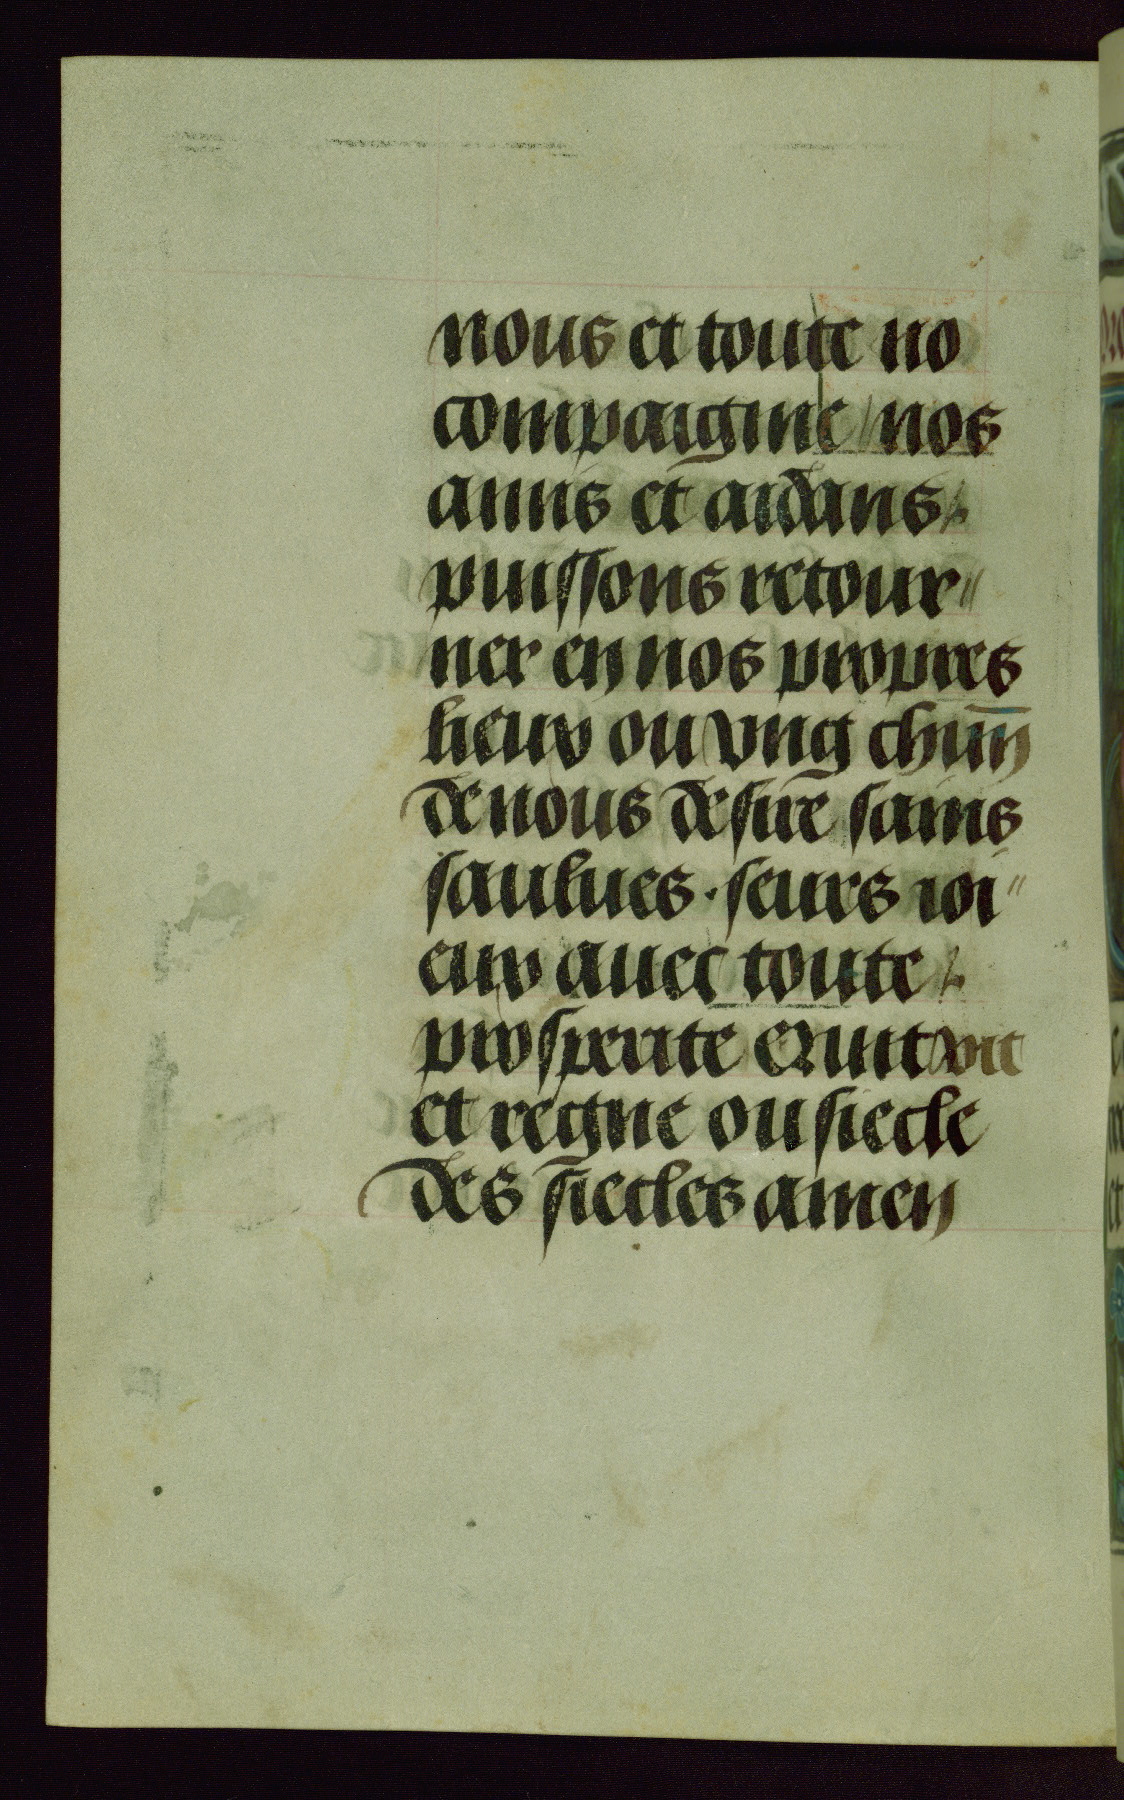 nous et toute no
compaignie nos
amis et aidans
puissons retour
ner en nos propres
lieux ou ung chūn
de nous desire sains
saulues · seurs ioi
eux auec toute
prosperite Qui vit
et regne ou siecle
des siecles amen